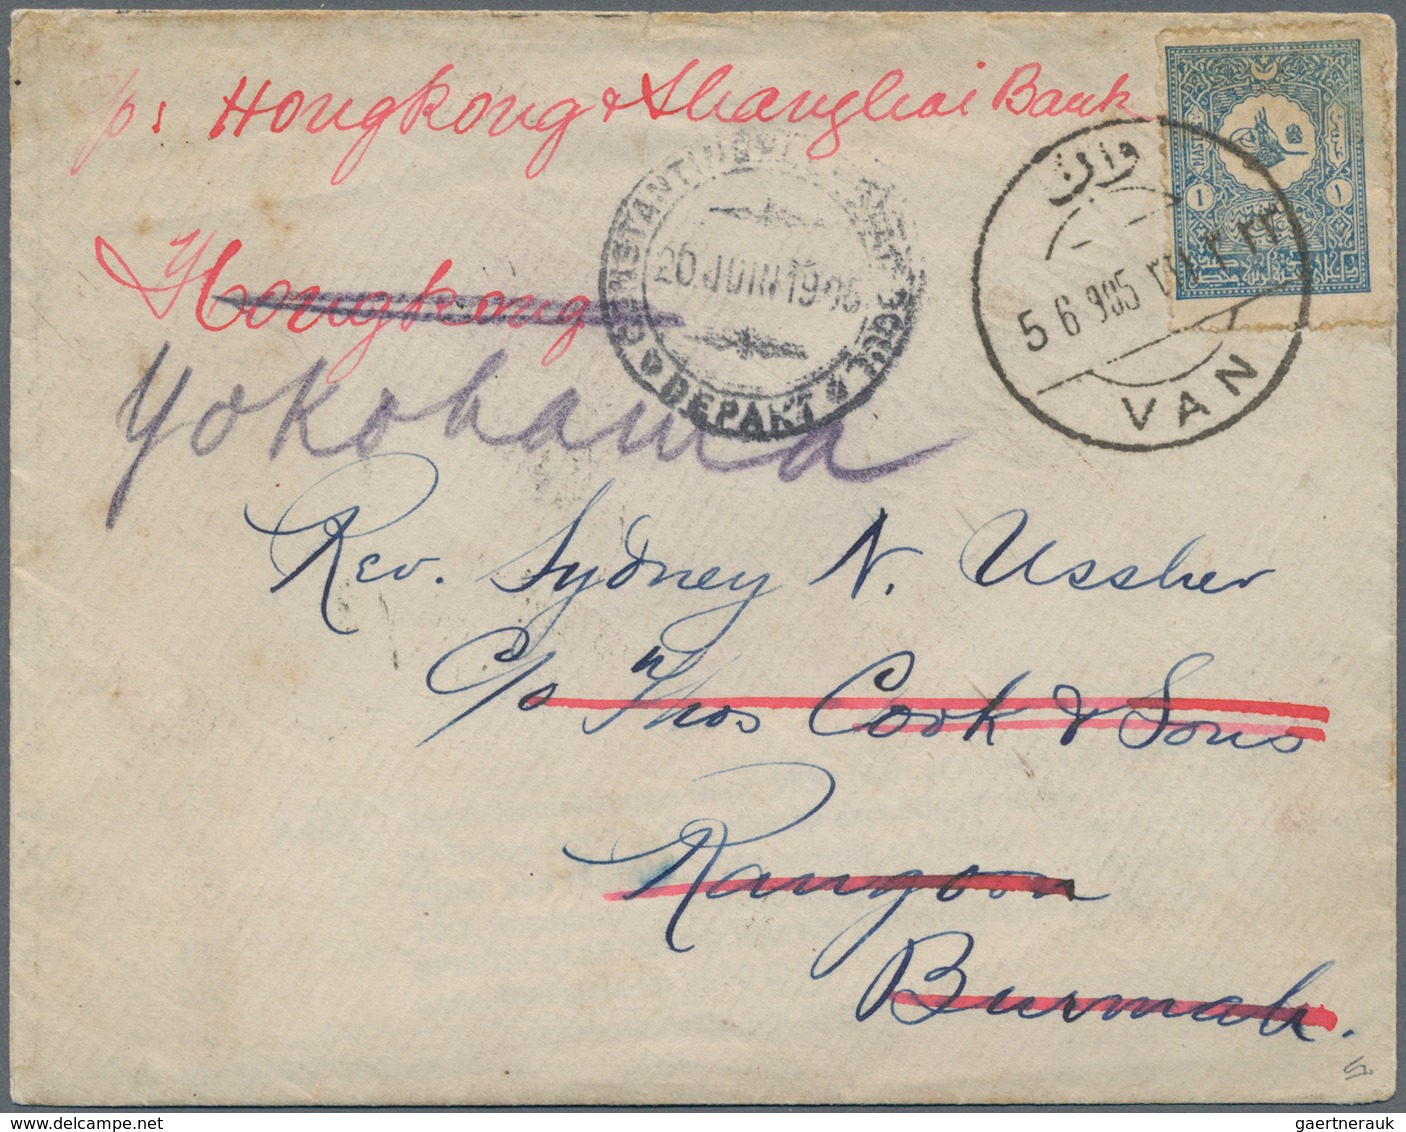 c/o: Hongkong & Shanghai Bank
Hongkong
Yokohama
Rev. Sydney N. Ussher
C/o Thos Cook & Sons
Rangoon
Burmah.
CONSTANTINOPLE
20 JUIN 1905
DEPART
وان
5 6 905
VAN
١
1
gaertnerauk